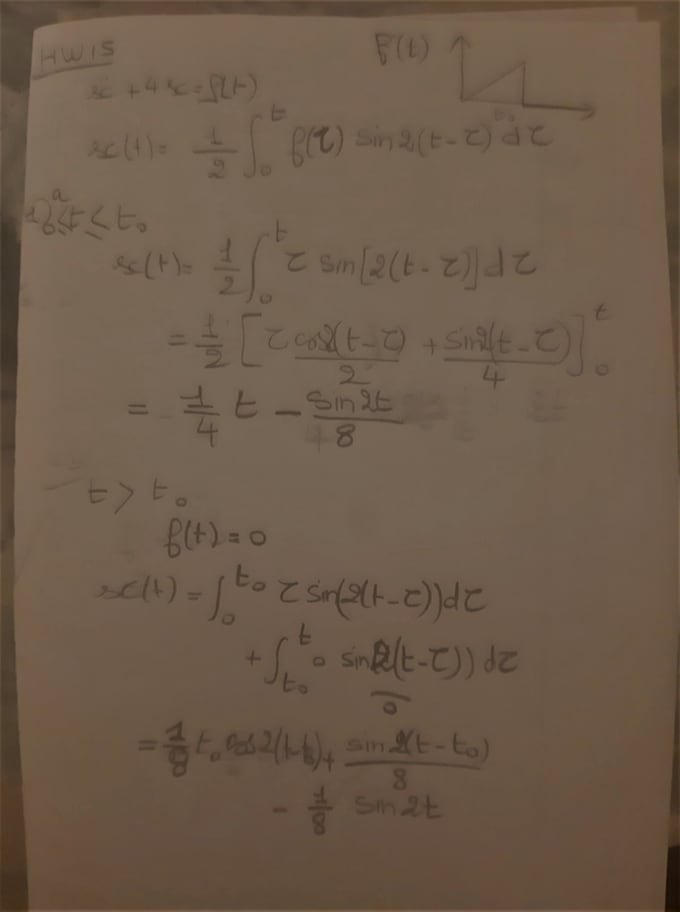 HW15
f(t)
ẍ + 4x = f(t)
t₀
x(t) = 1/2 ∫₀ᵗ f(τ) sin2(t-τ) dτ
0≤t≤t₀
x(t) = 1/2 ∫₀ᵗ τ sin[2(t-τ)] dτ
= 1/2 [τ cos2(t-τ)/2 + sin2(t-τ)/4]₀ᵗ
= 1/4 t - sin2t/8
t > t₀
f(t) = 0
x(t) = ∫₀^t₀ τ sin(2(t-τ)) dτ
+ ∫_t₀^t 0 sin(2(t-τ)) dτ
0
= 1/8 t₀ cos2(t-t₀) + sin2(t-t₀)/8
- 1/8 sin2t